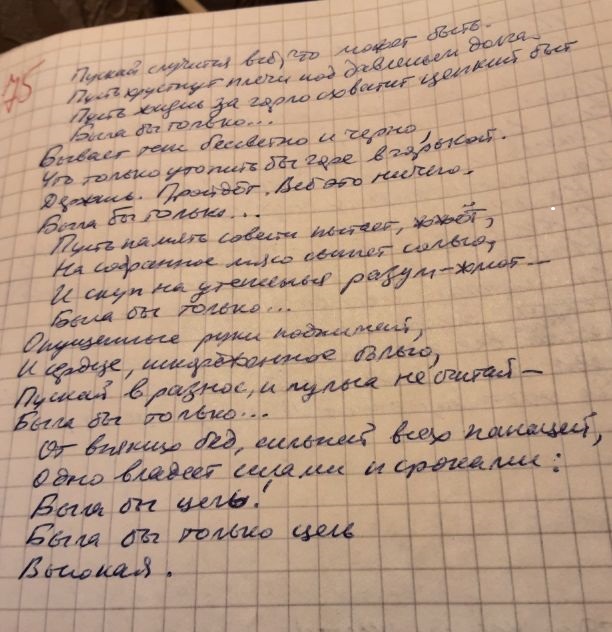 75
Пускай случится всё, что может быть.
Пусть хрустнут плечи под давленьем долга.
Пусть жизнь за горло схватит цепкий быт
Была бы только...
Бывает так бесцветно и черно,
Что только утопить бы горе в горькой.
Держись. Пройдёт. Всё это ничего.
Была бы только...
Пусть память совести пытает, жжёт,
На собранное лицо сыпет солью,
И скуп на утешенья разум-жмот —
Была бы только...
Опущенные руки поднимай,
И сердце, искорёженное болью,
Пускай в разнос, и пульса не считай —
Была бы только...
От всяких бед, сильней всех панацей,
Одно владеет силами и сроками:
Была бы цель!
Была бы только цель
Высокая.